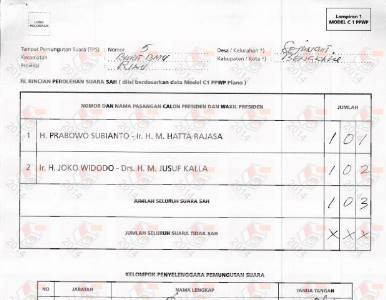 Lampiran 1
MODEL C 1 PPWP
Tempat Pemungutan Suara (TPS) Nomor 5 Desa / Kelurahan *)
Kecamatan BUKIT BATU Kabupaten / Kota *) BENGKALIS
Provinsi RIAU
IV. RINCIAN PEROLEHAN SUARA SAH ( diisi berdasarkan data Model C1 PPWP Plano )
NOMOR DAN NAMA PASANGAN CALON PRESIDEN DAN WAKIL PRESIDEN JUMLAH
1 H. PRABOWO SUBIANTO - Ir. H. M. HATTA RAJASA 1 0 1
2 Ir. H. JOKO WIDODO - Drs. H. M. JUSUF KALLA 1 0 2
JUMLAH SELURUH SUARA SAH 1 0 3
JUMLAH SELURUH SUARA TIDAK SAH X X X
KELOMPOK PENYELENGGARA PEMUNGUTAN SUARA
NO JABATAN NAMA LENGKAP TANDA TANGAN